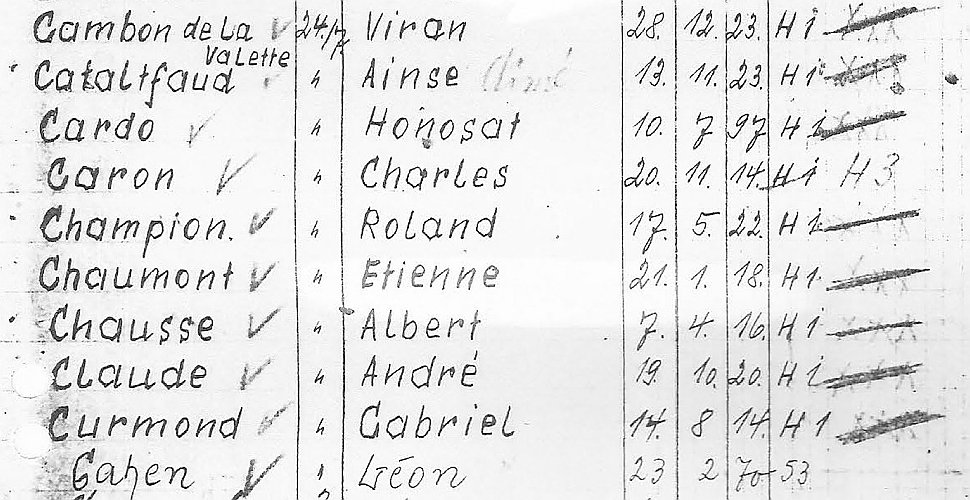 Cambon de La Valette 24/7 Viran 28. 12. 23. H i
Cataltfaud " Ainse Aimé 13. 11. 23. H i
Cardo " Honosat 10. 7 97 H i
Caron " Charles 20. 11. 14. H i H 3
Champion. " Roland 17. 5. 22. H i
Chaumont " Etienne 21. 1. 18. H i
Chausse " Albert 7. 4. 16. H i
Claude " André 19. 10. 20. H i
Curmond " Gabriel 14. 8 14. H 1
Cahen " Léon 23 2 70 53